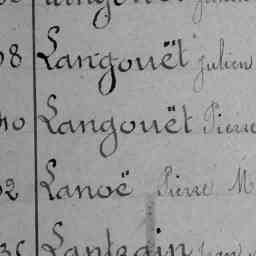 8 Langouët Julien
40 Langouët Pierre
2 Lanoë Pierre M
Lantrain